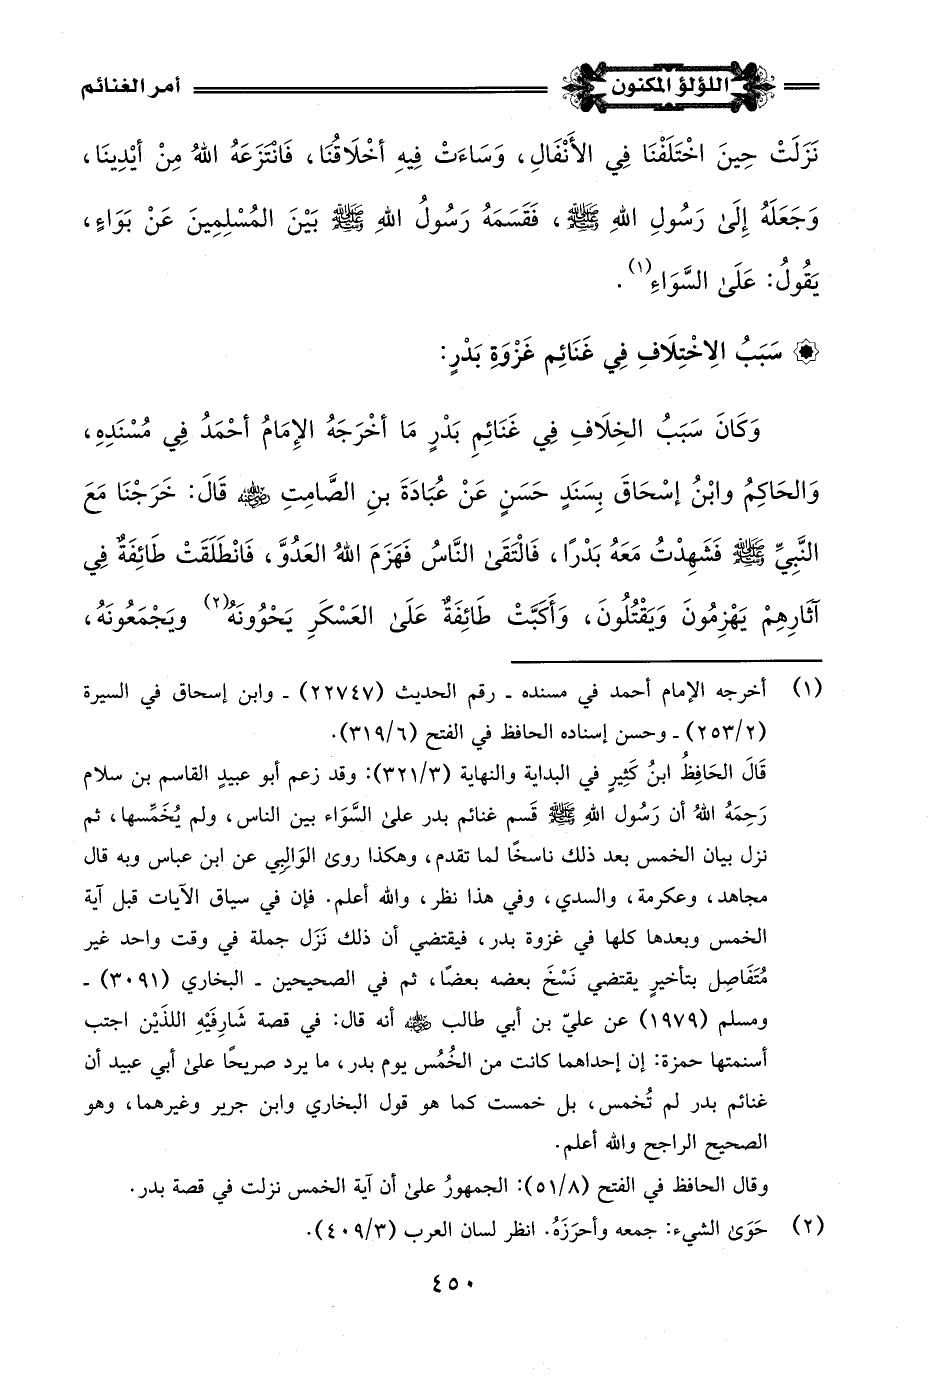 اللؤلؤ المكنون
أمر الغنائم
نَزَلَتْ حِينَ اخْتَلَفْنَا فِي الأَنْفَالِ، وَسَاءَتْ فِيهِ أخْلَاقُنَا، فَانْتَزَعَهُ اللهُ مِنْ أيْدِينَا،
وَجَعَلَهُ إِلَىٰ رَسُولِ اللهِ ﷺ، فَقَسَمَهُ رَسُولُ اللهِ ﷺ بَيْنَ المُسْلِمِينَ عَنْ بَوَاءٍ،
يَقُولُ: عَلَىٰ السَّوَاءِ(١).
۞ سَبَبُ الِاخْتِلَافِ فِي غَنَائِم غَزْوَةِ بَدْرٍ:
وَكَانَ سَبَبُ الخِلَافِ فِي غَنَائِمِ بَدْرٍ مَا أخْرَجَهُ الإِمَامُ أحْمَدُ فِي مُسْنَدِهِ،
وَالحَاكِمُ وابْنُ إسْحَاقَ بِسَنَدٍ حَسَنٍ عَنْ عُبَادَةَ بنِ الصَّامِتِ رضي الله عنه قَالَ: خَرَجْنَا مَعَ
النَّبِيِّ ﷺ فَشَهِدْتُ مَعَهُ بَدْرًا، فَالْتَقَىٰ النَّاسُ فَهَزَمَ اللهُ العَدُوَّ، فَانْطَلَقَتْ طَائِفَةٌ فِي
آثَارِهِمْ يَهْزِمُونَ وَيَقْتُلُونَ، وَأَكَبَّتْ طَائِفَةٌ عَلَىٰ العَسْكَرِ يَحْوُونَهُ(٢) ويَجْمَعُونَهُ،
(١) أخرجه الإمام أحمد في مسنده ـ رقم الحديث (٢٢٧٤٧) ـ وابن إسحاق في السيرة
(٢٥٣/٢) ـ وحسن إسناده الحافظ في الفتح (٣١٩/٦).
قَالَ الحَافِظُ ابنُ كَثِيرٍ في البداية والنهاية (٣٢١/٣): وقد زعم أبو عبيدٍ القاسم بن سلام
رَحِمَهُ اللهُ أن رَسُول اللهِ ﷺ قَسم غنائم بدر علىٰ السَّوَاء بين الناس، ولم يُخَمِّسها، ثم
نزل بيان الخمس بعد ذلك ناسخًا لما تقدم، وهكذا روىٰ الوَالِبِي عن ابن عباس وبه قال
مجاهد، وعكرمة، والسدي، وفي هذا نظر، والله أعلم. فإن في سياق الآيات قبل آية
الخمس وبعدها كلها في غزوة بدر، فيقتضي أن ذلك نَزَل جملة في وقت واحد غير
مُتَفَاصِل بتأخيرٍ يقتضي نَسْخَ بعضه بعضًا، ثم في الصحيحين ـ البخاري (٣٠٩١) ـ
ومسلم (١٩٧٩) عن عليّ بن أبي طالب رضي الله عنه أنه قال: في قصة شَارِفَيْهِ اللذَيْن اجتب
أسنمتها حمزة: إن إحداهما كانت من الخُمُس يوم بدر، ما يرد صريحًا علىٰ أبي عبيد أن
غنائم بدر لم تُخمس، بل خمست كما هو قول البخاري وابن جرير وغيرهما، وهو
الصحيح الراجح والله أعلم.
وقال الحافظ في الفتح (٥١/٨): الجمهورُ علىٰ أن آية الخمس نزلت في قصة بدر.
(٢) حَوَىٰ الشيء: جمعه وأحرَزَهُ. انظر لسان العرب (٤٠٩/٣).
٤٥٠